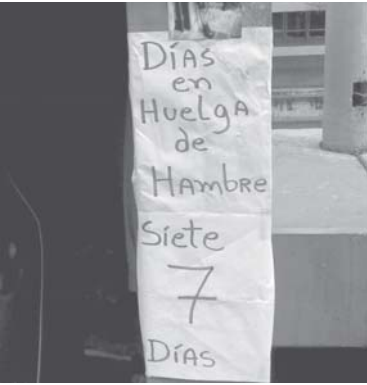 DÍAS
en
HueLgA
de
HAmbRe
Siete
7
DÍAS